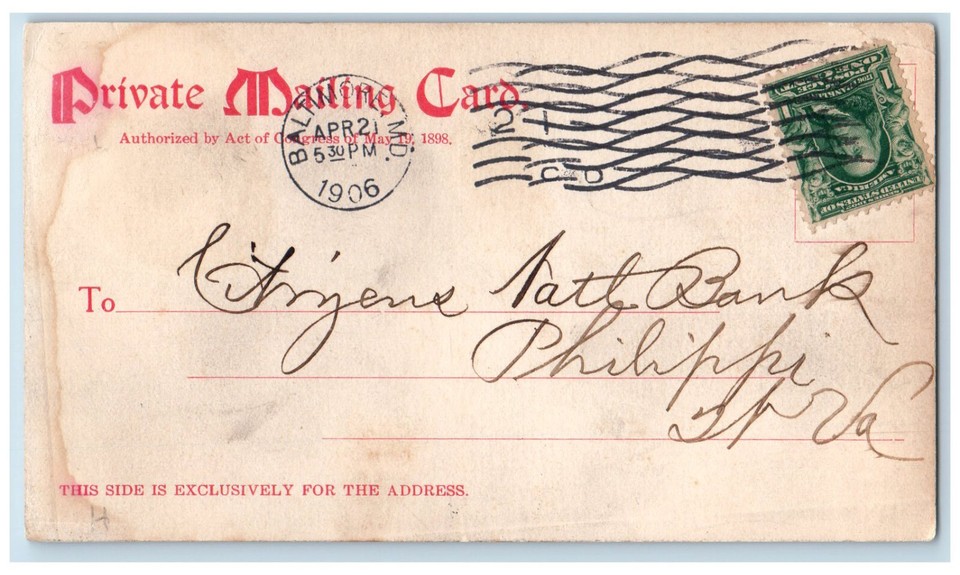 Private Mailing Card.
Authorized by Act of Congress of May 19, 1898.
BALTIMORE, MD.
APR 21
5 30 PM
1906
To Citizens Natl Bank
Philippi
W Va
THIS SIDE IS EXCLUSIVELY FOR THE ADDRESS.
UNITED STATES OF AMERICA
ONE CENT
1